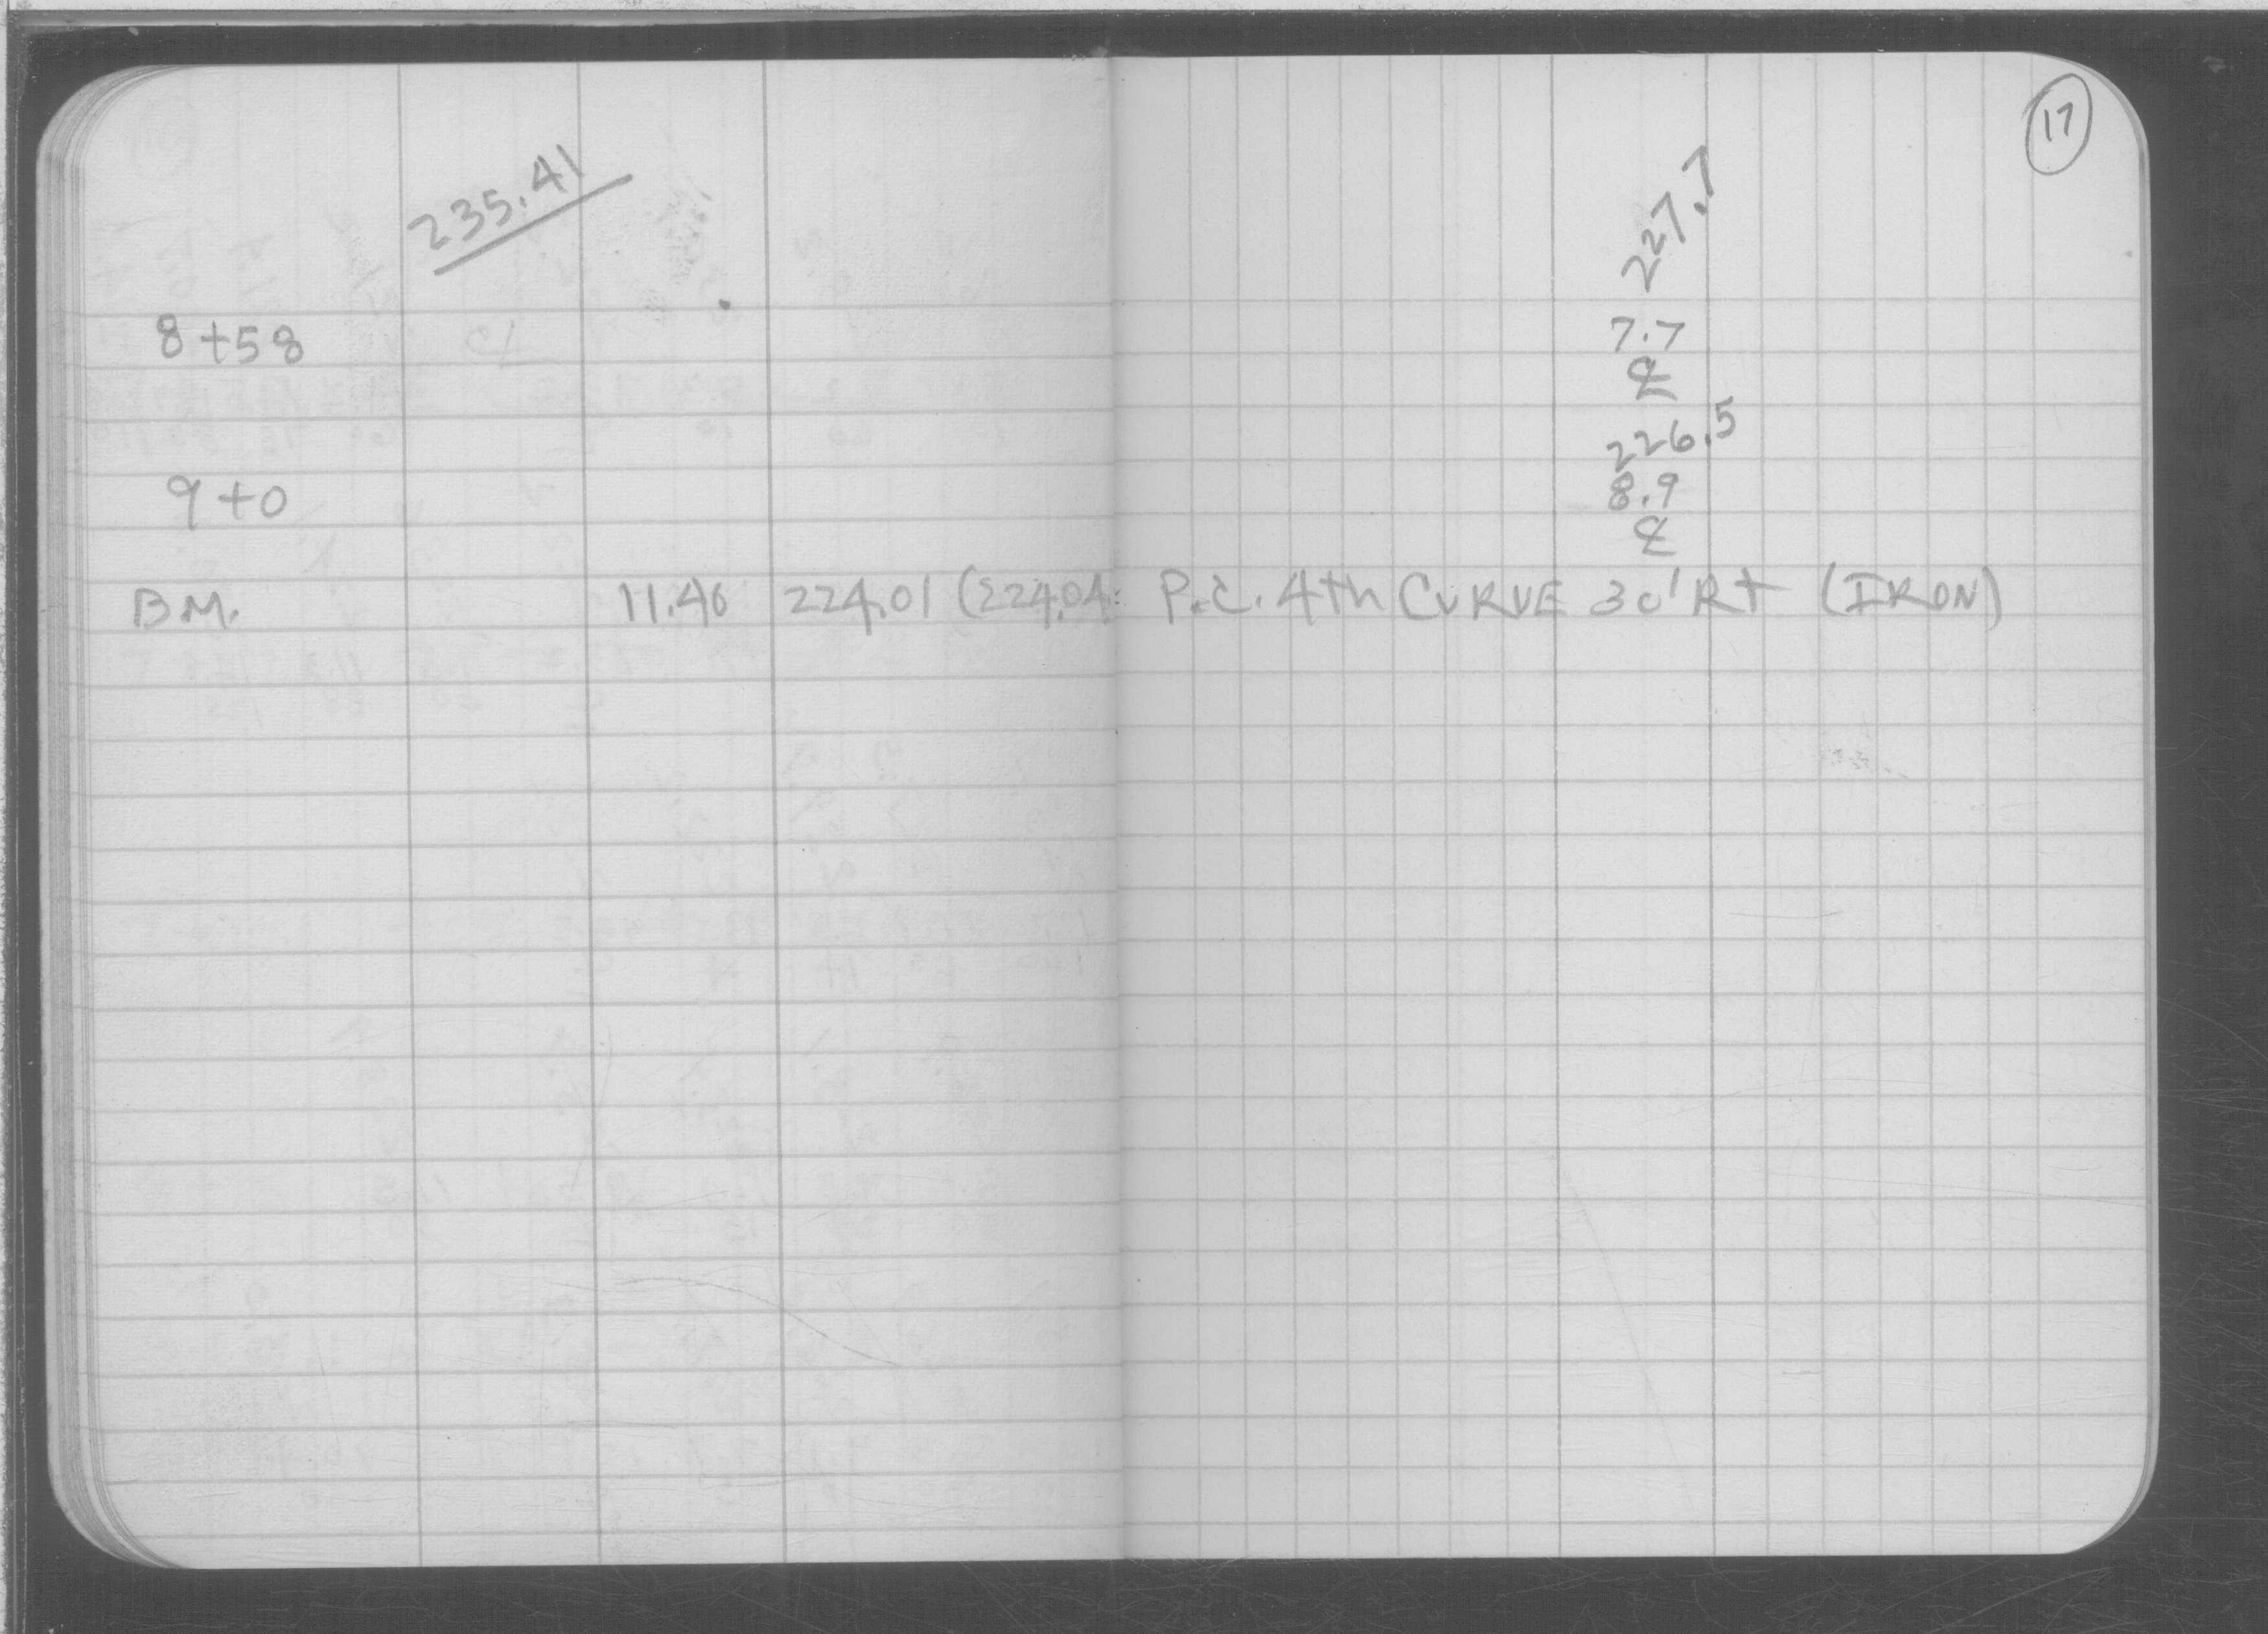 17
235.41
227.7
8+58 7.7
℄
226.5
9+0 8.9
℄
B.M. 11.40 224.01 (224.04= P.C. 4th CURVE 30' Rt (IRON)